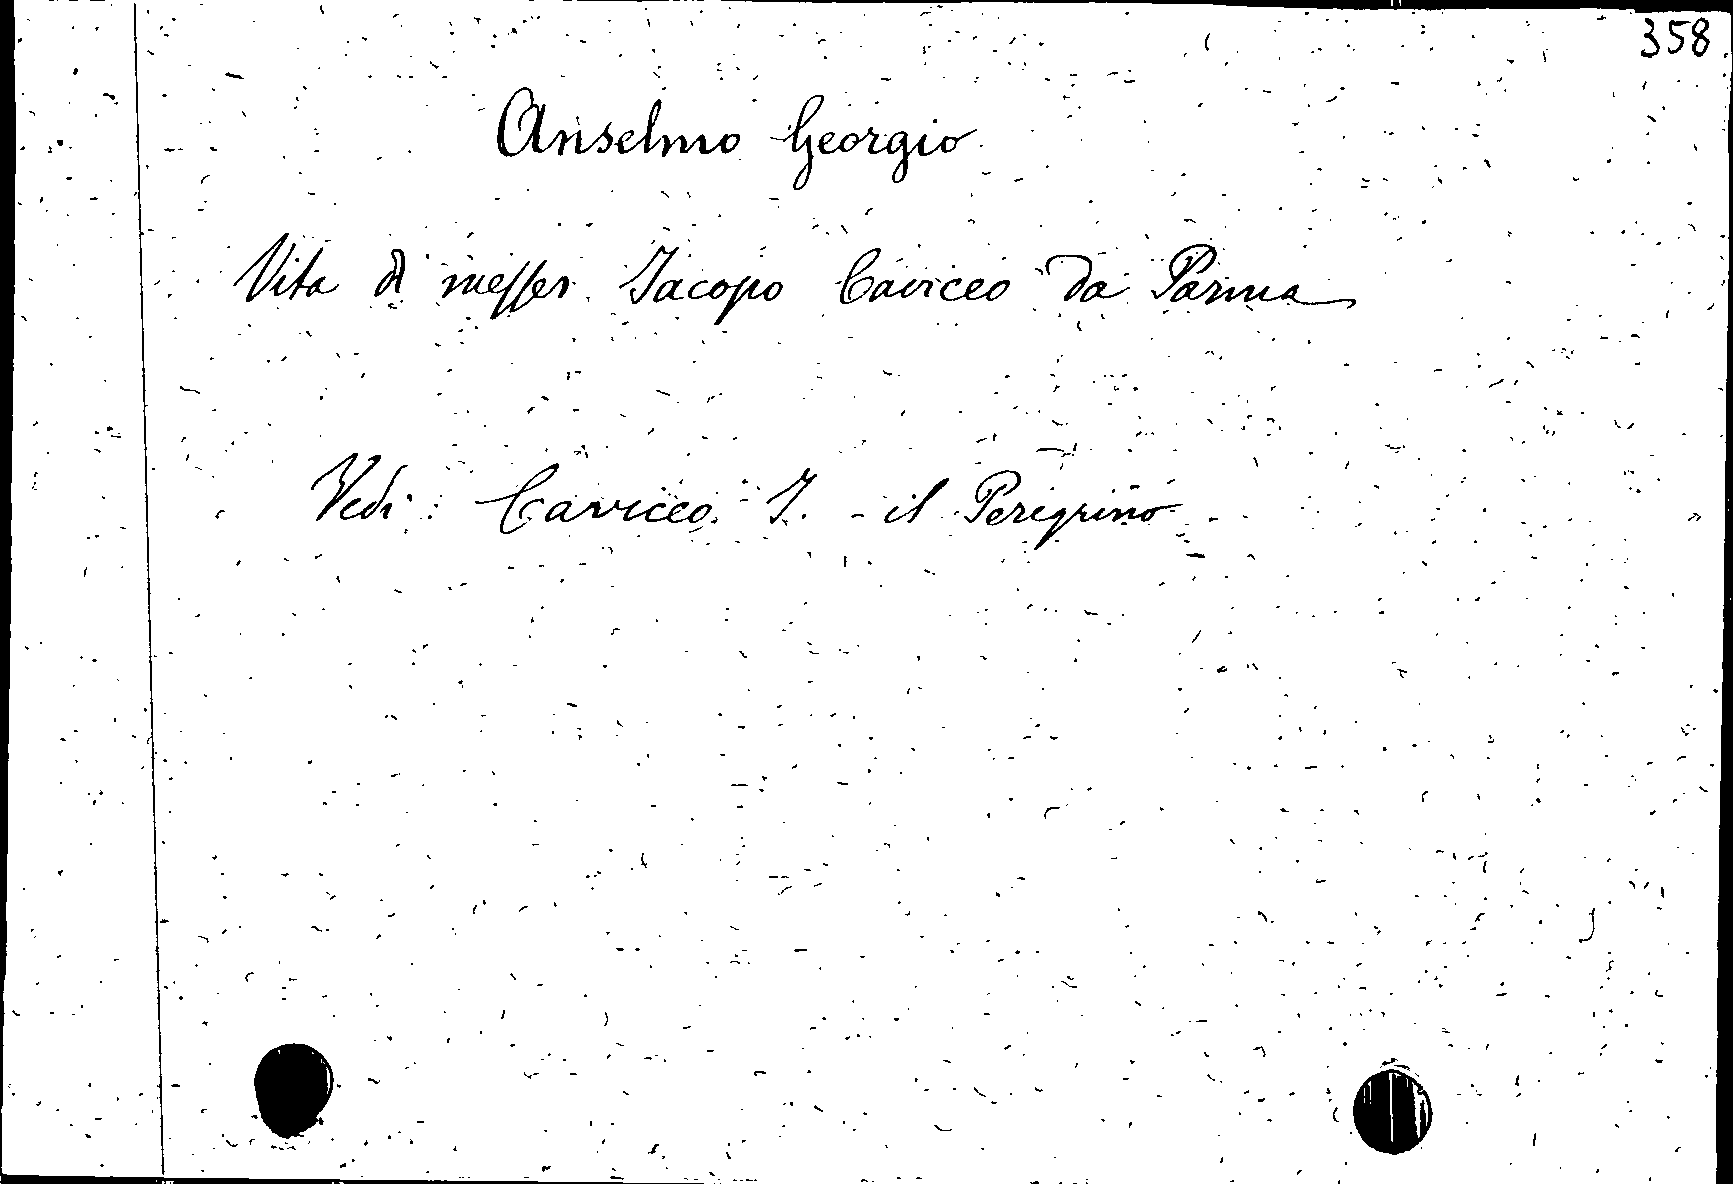 358
Anselmo Georgio
Vita di messer Jacopo Caviceo da Parma
Vedi: Caviceo J. - il Peregrino